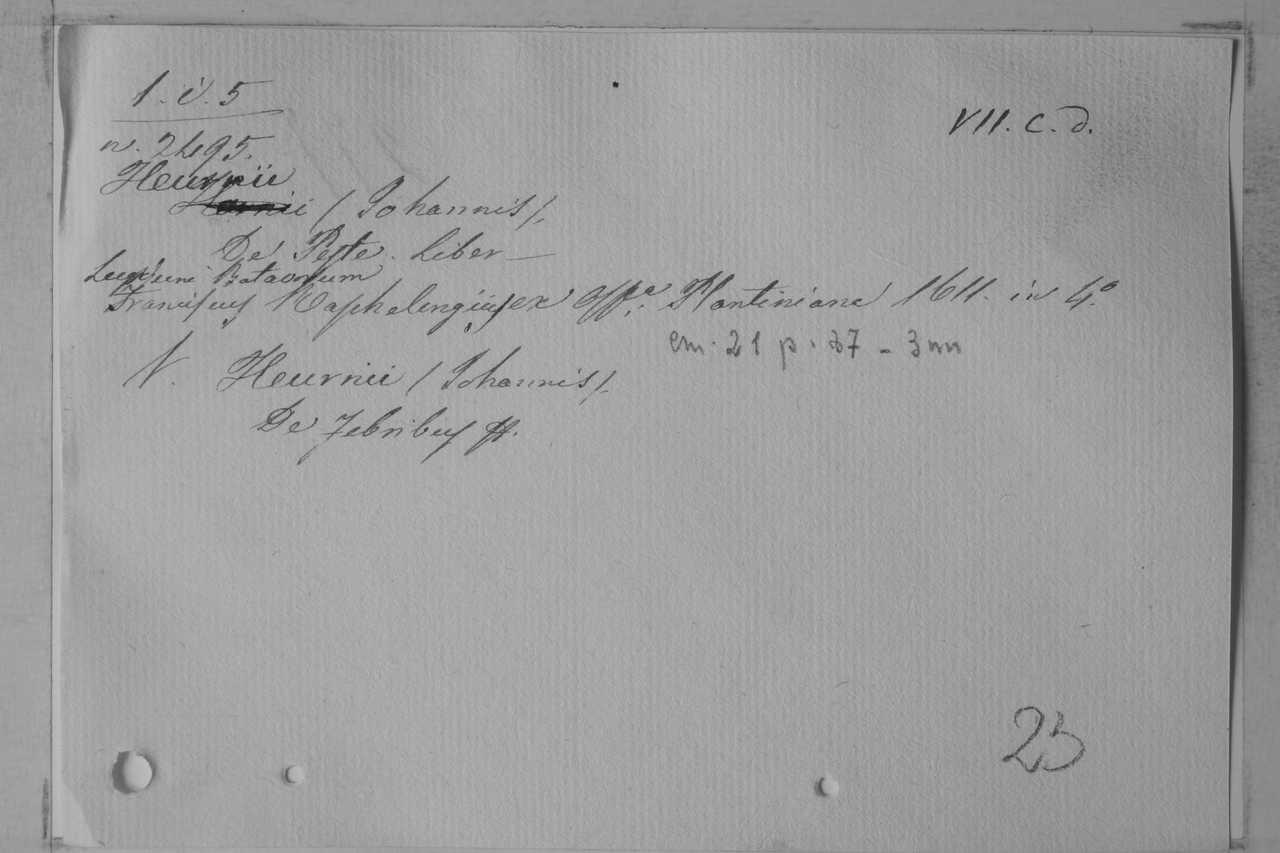 1. i. 5
VII. c. d.
n. 2495.
Heurnii
Hornii (Johannis).
De Peste. Liber —
Lugduni Batavorum
Franciscus Raphelengius ex Offa. Plantiniana 1611. in 4.o
cm. 21 p. 37 - 3 nn
V. Heurnii (Johannis).
De Febribus &.
23